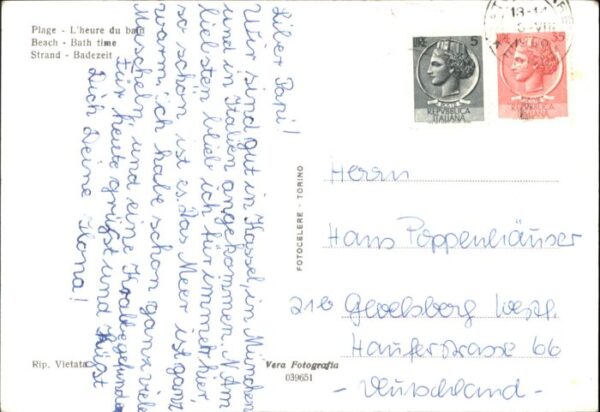 Plage - L'heure du bain
Beach - Bath time
Strand - Badezeit
Lieber Papi!
Wir sind gut in Kassel, in München
und in Italien angekommen. Am
liebsten blieb ich für immer hier,
so schön ist es. Das Meer ist ganz
warm, ich habe schon ganz viele
Muscheln und eine Krabbe gefunden.
Für heute grüßt und küßt
Dich Deine Ilona!
FOTOCELERE - TORINO
5
REPVBBLICA
ITALIANA
35
REPVBBLICA
ITALIANA
13-14
Herrn
Hans Poppenhäuser
21b Gevelsberg Westf.
Haufer strasse 66
- Deutschland -
Rip. Vietata
Vera Fotografia
039651